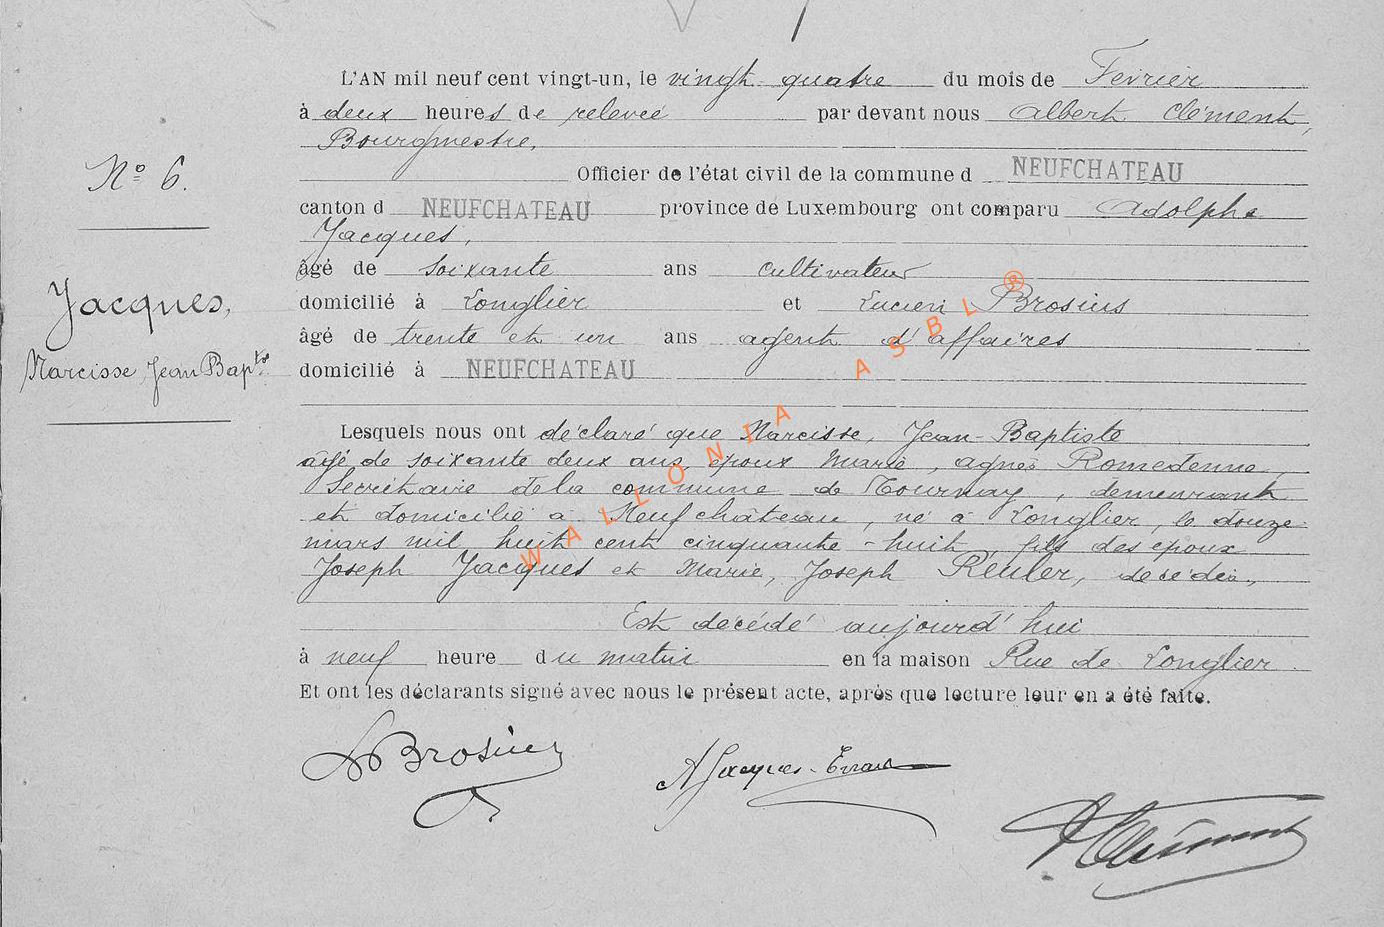 L'AN mil neuf cent vingt-un, le vingt-quatre du mois de Février
à deux heures de relevée par devant nous Albert Clément,
Bourgmestre,
Nº 6.
Officier de l'état civil de la commune d NEUFCHATEAU
canton d NEUFCHATEAU province de Luxembourg ont comparu Adolphe
Jacques,
âgé de soixante ans cultivateur
Jacques,
domicilié à Longlier et Lucien Brosius
âgé de trente et un ans agent d'affaires
Narcisse Jean Bapte.
domicilié à NEUFCHATEAU
Lesquels nous ont déclaré que Narcisse, Jean-Baptiste
âgé de soixante deux ans, époux Marie, agnès Romedenne,
Secrétaire de la commune de Tournay, demeurant
et domicilié à Neufchâteau, né à Longlier, le douze
mars mil huit cent cinquante-huit, fils des époux
Joseph Jacques et Marie, Joseph Reuler, décédés,
Est décédé aujourd'hui
à neuf heure du matin en la maison Rue de Longlier.
Et ont les déclarants signé avec nous le présent acte, après que lecture leur en a été faite.
LBrosius
AJacques-Evrard
AClément
WALLONIA ASBL®